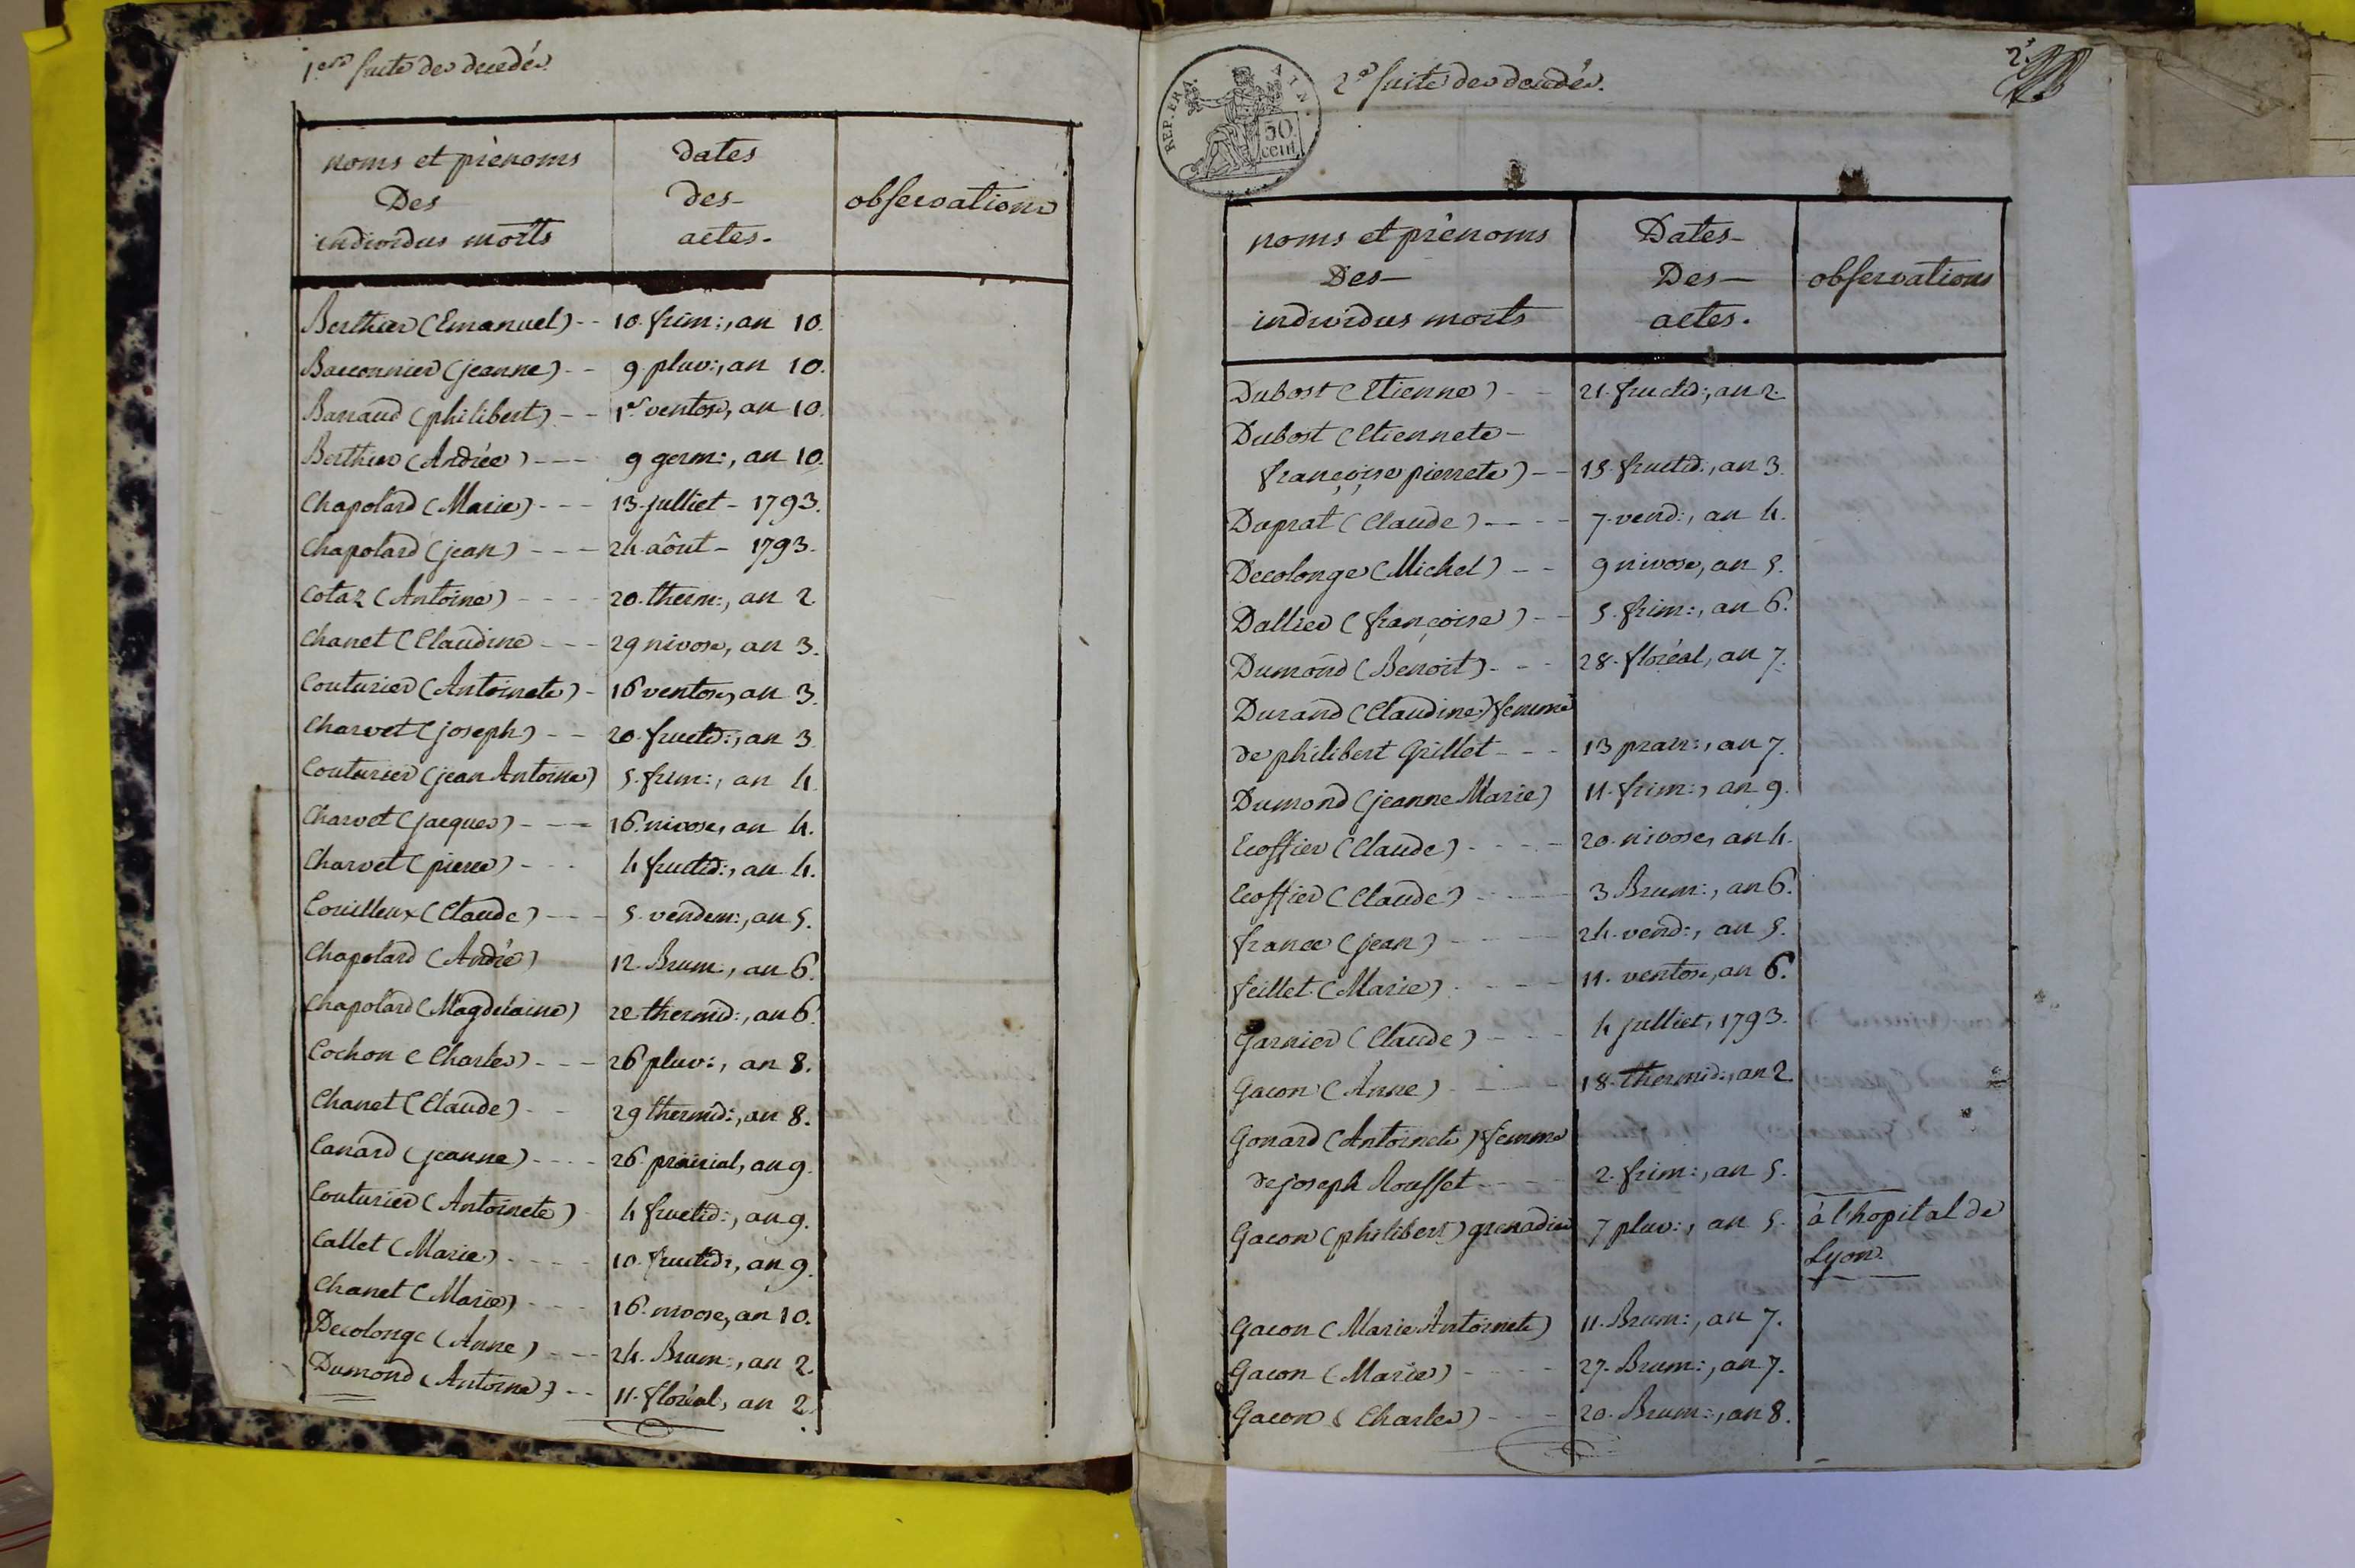 1ere suite des decedés.
noms et prénoms
Des
individus morts
dates
des-
actes.
observations
Berthier (Emanuel) -- 10. frim:, an 10.
Baconnier (jeanne) -- 9. pluv:, an 10.
Barraud (philibert) -- 1er ventose, an 10.
Berthier (Andrée) --- 9 germ:, an 10.
Chapolard (Marie) --- 13. julliet - 1793.
Chapolard (jean) --- 24. aôut - 1793.
Cotaz (Antoine) ---- 20. therm:, an 2.
Chanet (Claudine --- 29 nivose, an 3.
Couturier (Antoinete) - 16 ventose, an 3.
Charvet (joseph) -- 20. fructid:, an 3.
Couturier (jean Antoine) 5. frim:, an 4.
Charvet (jacques) --- 16. nivose, an 4.
Charvet (pierre) --- 4 fructid:, an 4.
Couilleux (Claude) --- 5. vendem:, an 5.
Chapolard (André) 12. Brum:, an 6.
Chapolard (Magdelaine) 22 thermid:, an 6.
Cochon (Charles) --- 26 pluv:, an 8.
Chanet (Claude) -- 29 thermid:, an 8.
Canard (jeanne) ---- 26. prairial, an 9.
Couturier (Antoinete) - 4 fructid:, an 9.
Callet (Marie) ---- 10. fructid:, an 9.
Chanet (Marie) ---- 16. nivose, an 10.
Decolonge (Anne) --- 24. Brum:, an 2.
Dumond (Antoine) -- 11. floréal, an 2.
2e suite des decedés.
2e
REP. FRA.
50
cent
noms et prénoms
Des-
individus morts
Dates-
Des-
actes.
observations
Dubost (Etienne) -- 21. fructid:, an 2.
Dubost (Etiennete-
françoise pierrete) -- 15. fructid:, an 3.
Duprat (Claude) ---- 7. vend:, an 4.
Decolonge (Michel) -- 9 nivose, an 5.
Dallier (françoise) -- 5. frim:, an 6.
Dumond (Benoit) --- 28. floréal, an 7.
Durand (Claudine) femme
de philibert Grillet --- 13 prair:, an 7.
Dumond (jeanne Marie) 11. frim:, an 9.
Ecoffier (Claude) ---- 20. nivose, an 4.
Ecoffier (Claude) ---- 3 Brum:, an 6.
france (jean) ---- 24. vend:, an 5.
feillet (Marie) ---- 11. ventose, an 6.
Garnier (Claude) --- 4 julliet, 1793.
Gacon (Anne) ---- 18. thermid:, an 2.
Gonard (Antoinete) femme
de joseph Rousset ---- 2. frim:, an 5.
Gacon (philibert) grenadier 7 pluv:, an 5. à l'hopital de
Lyon.
Gacon (Marie Antoinete) 11. Brum:, an 7.
Gacon (Marie) ---- 27. Brum:, an 7.
Gacon (Charles) --- 20. Brum:, an 8.